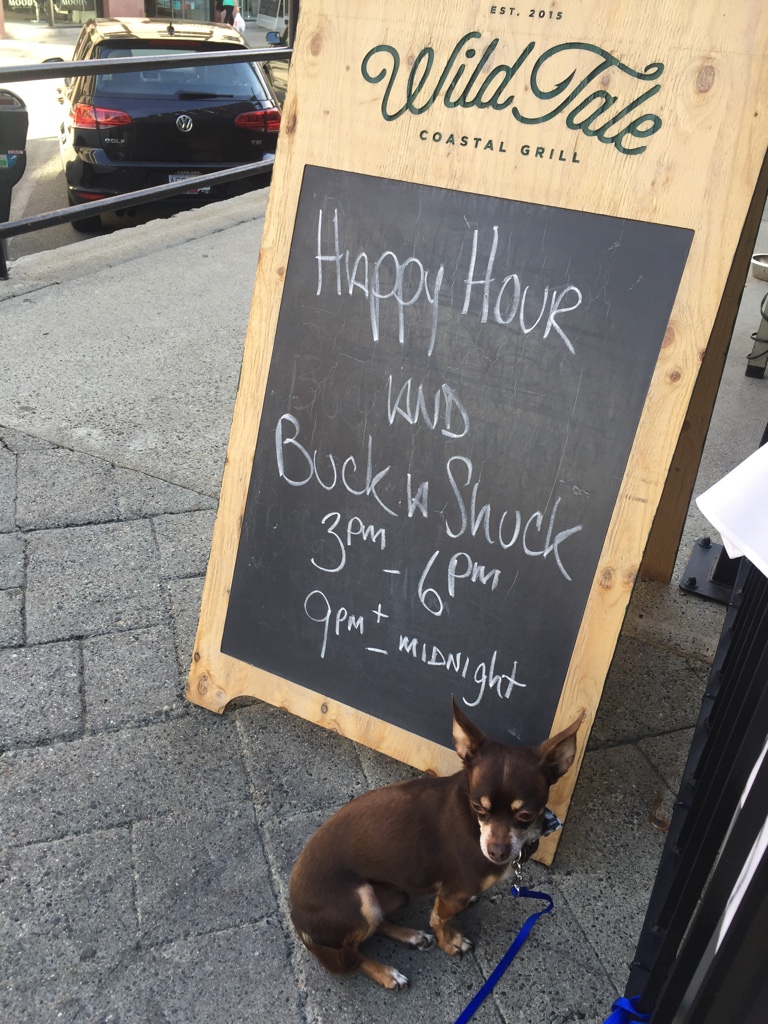 EST. 2015
Wild Tale
COASTAL GRILL
Happy Hour
AND
Buck n Shuck
3pm
- 6pm
9pm +
- midnight
GOLF